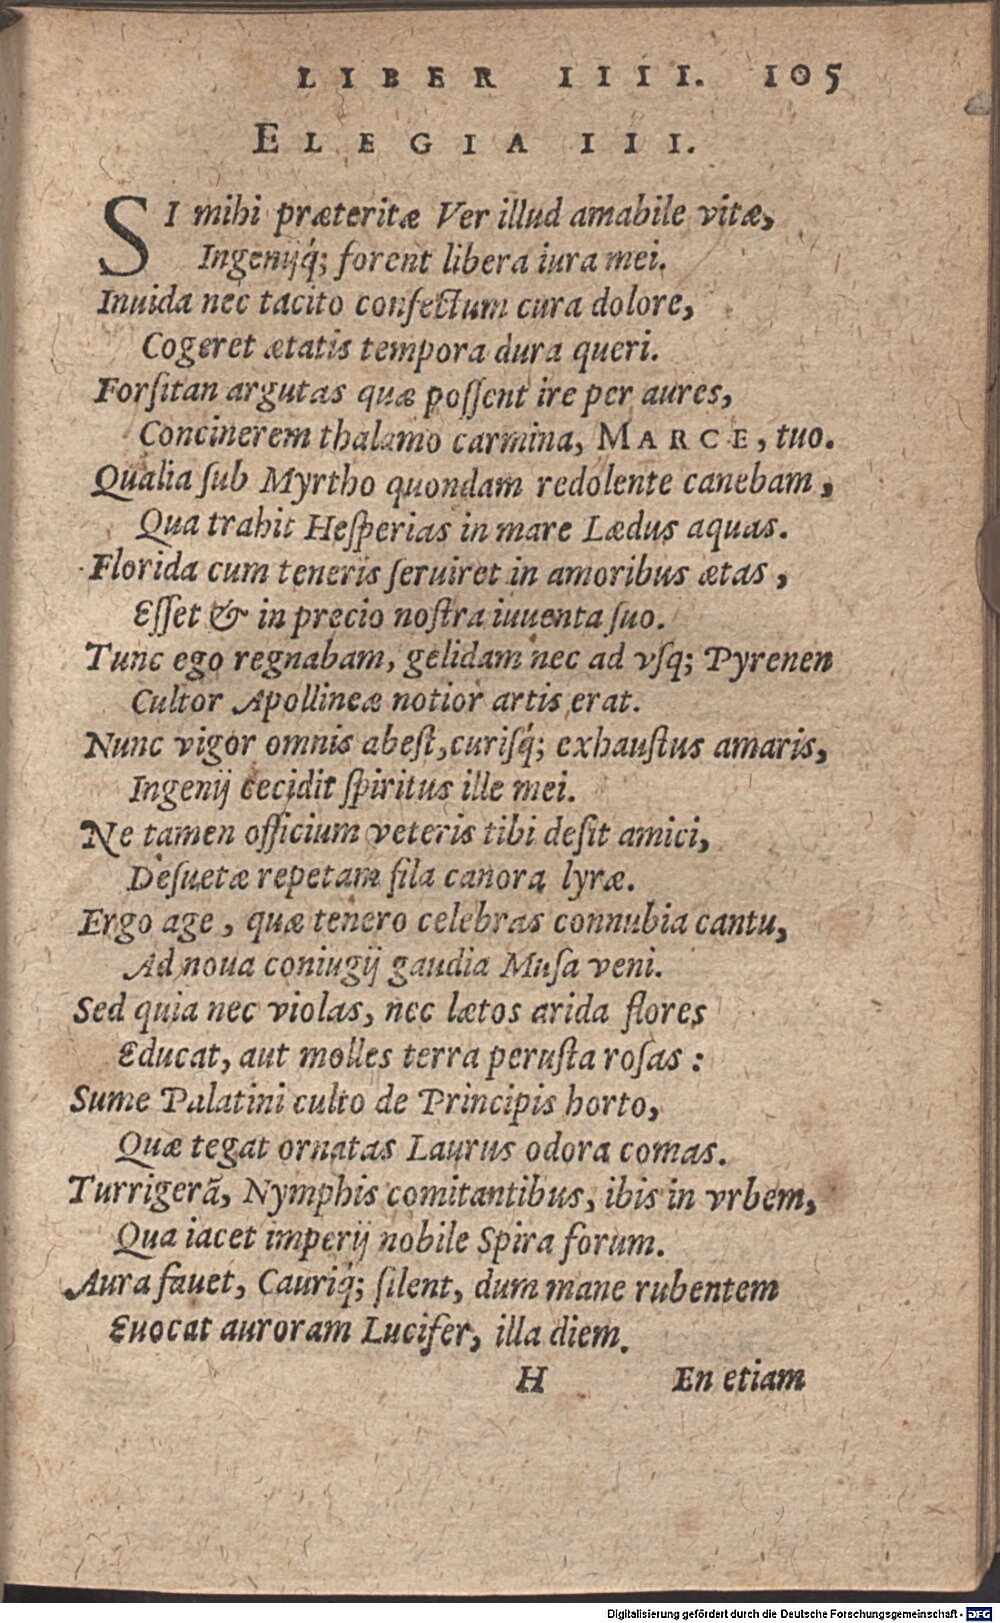 LIBER IIII. 105
ELEGIA III.
SI mihi præteritæ Ver illud amabile vitæ,
Ingenijq́; forent libera iura mei.
Inuida nec tacito confectum cura dolore,
Cogeret ætatis tempora dura queri.
Forſitan argutas quæ poſſent ire per aures,
Concinerem thalamo carmina, MARCE, tuo.
Qualia ſub Myrtho quondam redolente canebam,
Qua trahit Heſperias in mare Lædus aquas.
Florida cum teneris ſeruiret in amoribus ætas,
Eſſet & in precio noſtra iuuenta ſuo.
Tunc ego regnabam, gelidam nec ad vſq; Pyrenen
Cultor Apollineæ notior artis erat.
Nunc vigor omnis abeſt, curiſq́; exhauſtus amaris,
Ingenij cecidit ſpiritus ille mei.
Ne tamen officium veteris tibi deſit amici,
Deſuetæ repetam fila canora lyræ.
Ergo age, quæ tenero celebras connubia cantu,
Ad noua coniugij gaudia Muſa veni.
Sed quia nec violas, nec lætos arida flores
Educat, aut molles terra peruſta roſas:
Sume Palatini culto de Principis horto,
Quæ tegat ornatas Laurus odora comas.
Turrigerã, Nymphis comitantibus, ibis in vrbem,
Qua iacet imperij nobile Spira forum.
Aura fauet, Cauriq́; ſilent, dum mane rubentem
Euocat auroram Lucifer, illa diem.
H En etiam
Digitalisierung gefördert durch die Deutsche Forschungsgemeinschaft - DFG